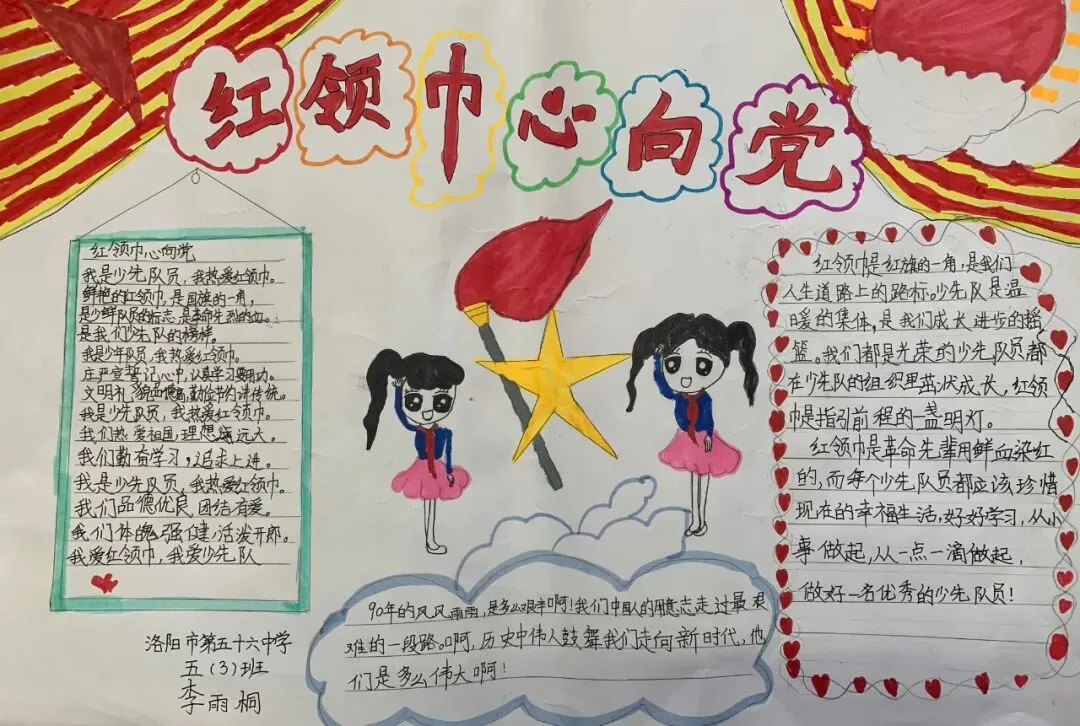 红领巾心向党
红领巾心向党
我是少先队员，我热爱红领巾。
鲜艳的红领巾，是国旗的一角，
是少先队员的标志，是革命先烈的血。
是我们少先队的榜样。
我是少年队员，我热爱红领巾。
庄严宣誓记心中，认真学习要用功。
文明礼貌品德高，勤俭节约讲传统。
我是少先队员，我热爱红领巾。
我们热爱祖国，理想远大。
我们勤奋学习，追求上进。
我是少先队员，我热爱红领巾。
我们品德优良，团结有爱。
我们体魄强健，活泼开朗。
我爱红领巾，我爱少先队
洛阳市第五十六中学
五（3）班
李雨桐
90年的风风雨雨，是多么艰辛啊！我们中国人的用意志走过最艰
难的一段路。啊，历史中伟人鼓舞我们走向新时代，他
们是多么伟大啊！
红领巾是红旗的一角，是我们
人生道路上的路标。少先队是温
暖的集体，是我们成长进步的摇
篮。我们都是光荣的少先队员都
在少先队的组织里茁状成长，红领
巾是指引前程的一盏明灯。
红领巾是革命先辈用鲜血染红
的，而每个少先队员都应该珍惜
现在的幸福生活，好好学习，从小
事做起，从一点一滴做起，
做好一名优秀的少先队员！